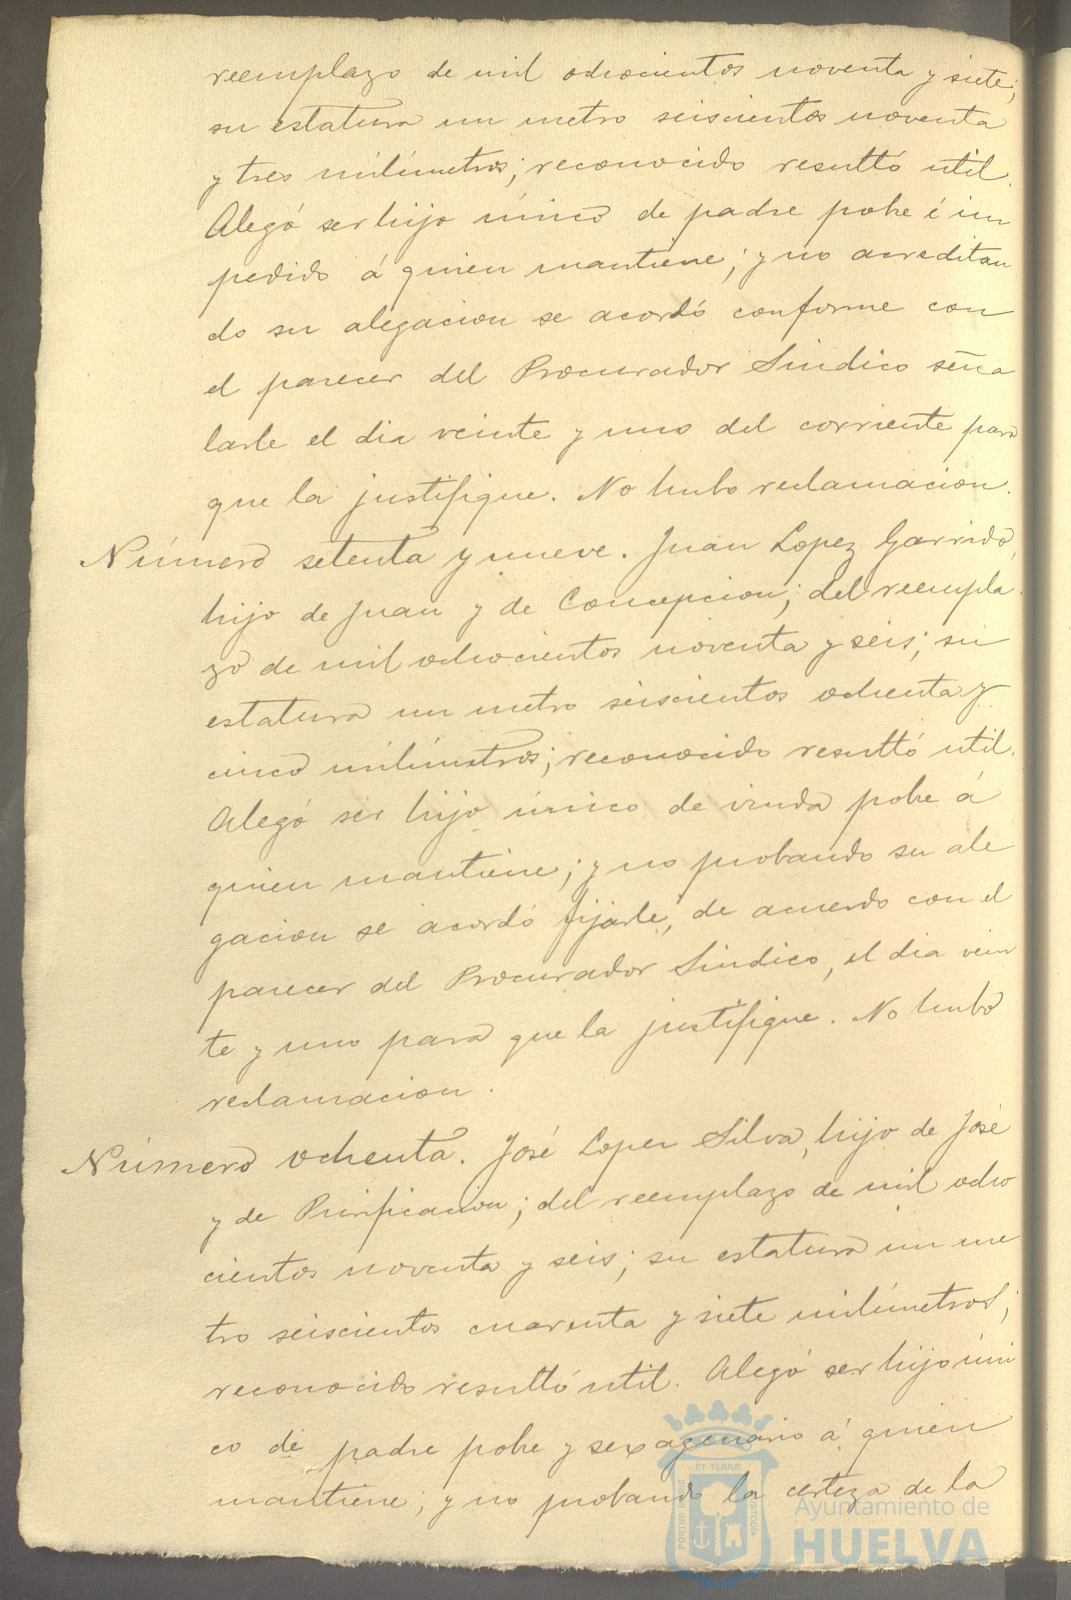 reemplazo de mil ochocientos noventa y siete;
su estatura un metro seiscientos noventa
y tres milímetros; reconocido resultó util.
Alegó ser hijo único de padre pobre é im
pedido á quien mantiene; y no acreditan
do su alegacion se acordó conforme con
el parecer del Procurador Sindico seña
larle el dia veinte y uno del corriente para
que la justifique. No hubo reclamacion.
Número setenta y nueve. Juan Lopez Garrido,
hijo de Juan y de Concepcion; del reempla
zo de mil ochocientos noventa y seis; su
estatura un metro seiscientos ochenta y
cinco milímetros; reconocido resultó util.
Alegó ser hijo único de viuda pobre á
quien mantiene; y no probando su ale
gacion se acordó fijarle, de acuerdo con el
parecer del Procurador Sindico, el dia vein
te y uno para que la justifique. No hubo
reclamacion.
Número ochenta. José Lopez Silva, hijo de José
y de Purificacion; del reemplazo de mil ocho
cientos noventa y seis; su estatura un me
tro seiscientos cuarenta y siete milímetros;
reconocido resultó util. Alegó ser hijo úni
co de padre pobre y sexagenario á quien
mantiene; y no probando la certeza de la
ET TERRÆ
PORTUS MARIS
CUSTODIA
Ayuntamiento de
HUELVA